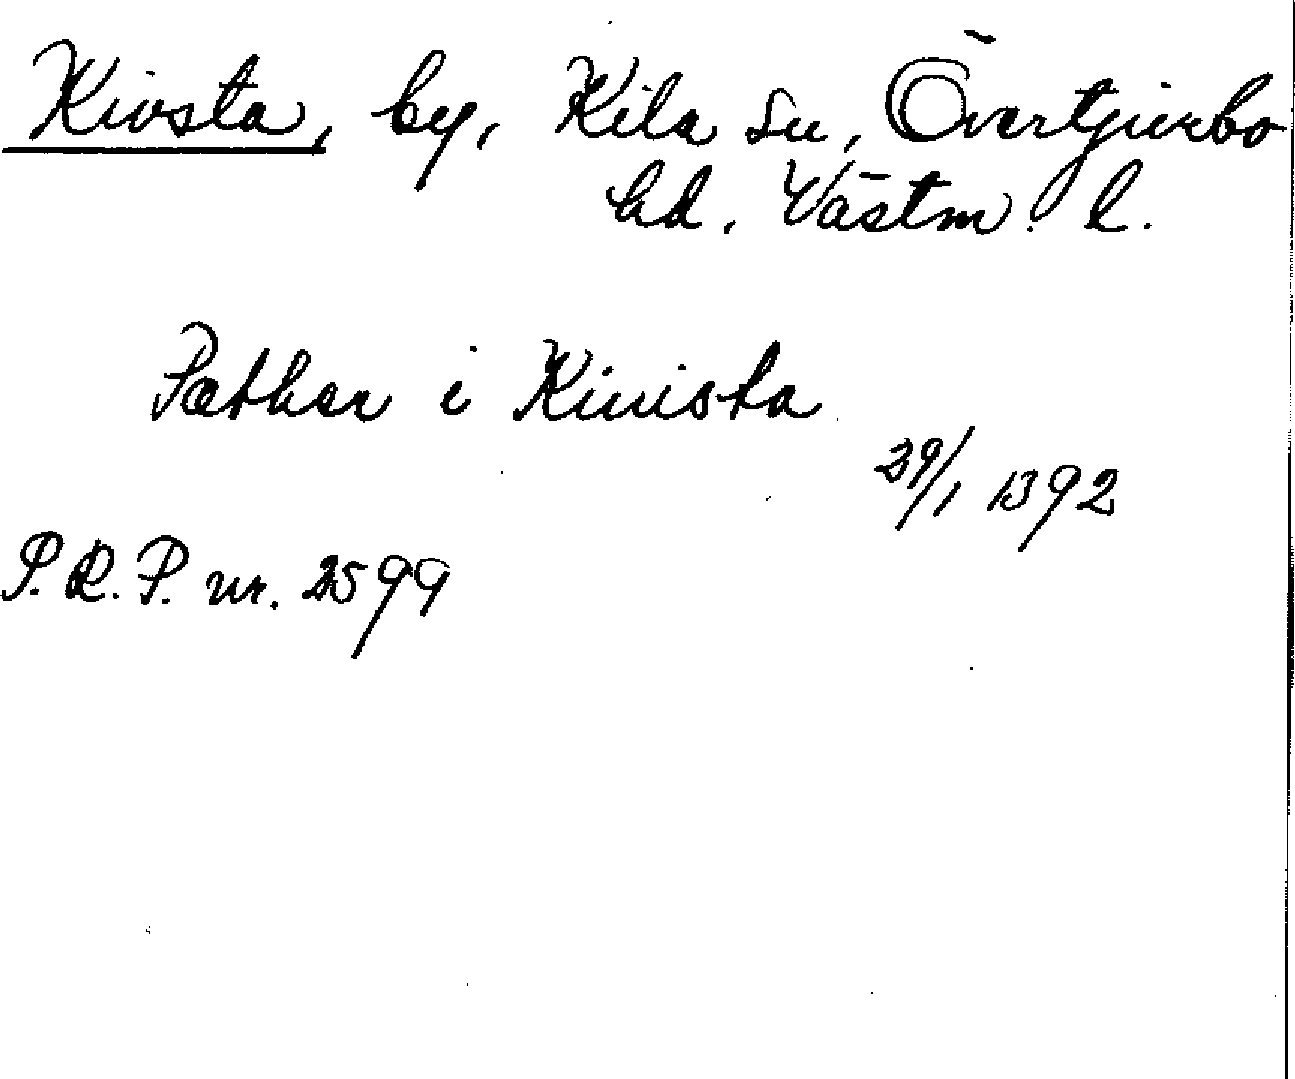 Kivsta, by, Kila sn, Övertjurbo
hd. Västm. l.
Pæthar i Kiuista
29/1 1392
P.R.P. nr. 2599